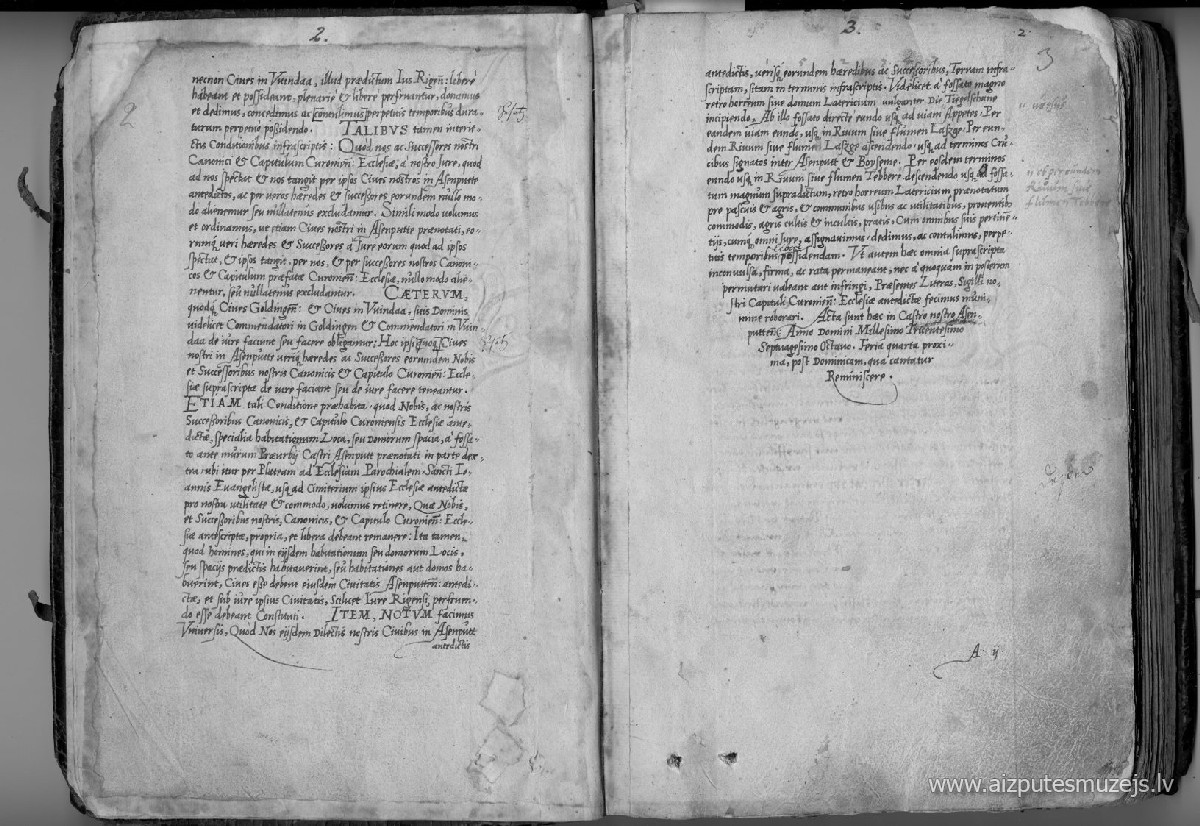 2.
2
necnon Ciues in Vuindaa, illud prædictum Ius Rigeñ: libere
habeant et possideant, plenarie & libere perfruantur, donamus
et dedimus, concedimus ac contulimus perpetuis temporibus dura-
turum perpetuo possidendo. TALIBVS tamen interie-
ctis Conditionibus infrascriptis: Quod nos ac Successores nostri
Canonici & Capitulum Curomeñ: Ecclesiæ, à nostro Jure, quod
ad nos spectat & nos tangit per ipsos Ciues nostros in Asenputte
antedictos, ac per veros hæredes & successores eorundem nullo mo-
do alienemur seu nullatenus excludamur. Simili modo volumus
et ordinamus, ut etiam Ciues nostri in Asenputte prænotati, eo-
rumq; veri hæredes & Successores à Iure eorum quod ad ipsos
spectat, & ipsos tangit, per nos, & per successores nostros Canoni-
cos & Capitulum præfatæ Curomeñ: Ecclesiæ, nullo modo alie-
nentur, seu nullatenus excludantur. CÆTERVM,
quodq; Ciues Goldingeñ: & Ciues in Vuindaa, suis Dominis
videlicet Commendatori in Goldingen & Commendatori in Vuin
daa de iure faciunt seu facere obligantur: Hoc ipsi quoq; Ciues
nostri in Asenputte veriq; hæredes ac Successores eorundem Nobis
et Successoribus nostris Canonicis & Capitulo Curomeñ: Eccle-
siæ suprascriptæ de iure faciant seu de iure facere teneantur.
ETIAM tali Conditione præhabita quod Nobis, ac nostris
Successoribus Canonicis, & Capitulo Curomensis Ecclesiæ ante-
dictæ, specialia habitationum Loca, seu domorum spacia, à fossa-
to ante murum Præurbij Castri Asenputt prænotati in parte dex
tra ubi itur per Plateam ad Ecclesiam Parochialem Sancti Io-
annis Euangelistæ, usq; ad Cimiterium ipsius Ecclesiæ antedictæ
pro nostra utilitate & commodo, volumus retinere, Quæ Nobis,
et Successoribus nostris, Canonicis, & Capitulo Curomeñ: Eccle-
siæ antescriptæ, propria, et libera debeant remanere: Ita tamen,
quod homines, qui in eijsdem habitationum seu domorum Locis,
seu spacijs prædictis habitauerint, seu habitationes aut domos ha-
buerint, Ciues esse debent eiusdem Ciuitatis Asenputteñ: antedi-
ctæ, et sub iure ipsius Ciuitatis, Scilicet Iure Rigensi, perfruen-
do esse debeant Constituti. ITEM, NOTVM facimus
Vniuersis, Quod Nos eijsdem Dilectis nostris Ciuibus in Asenputt
antedictis
3.
2.
3
antedictis, verisq; eorundem hæredibus ac Successoribus, Terram infra-
scriptam, sitam in terminis infrascriptis. Videlicet à fossato magno
retro horreum siue domum Latericium vulgariter Die Tiegelschune
incipiendo. Ab illo fossato directe eundo usq; ad viam Appetos. Per
eandem viam eundo, usq; in Riuum siue flumen Laszge. Per eun-
dem Riuum siue flumen Laszge ascendendo usq; ad terminos Cru-
cibus signatos inter Asenputt & Boysene. Per eosdem terminos
eundo usq; in Riuum siue flumen Tebbere, descendendo usq; ad fossa-
tum magnum supradictum, retro horreum Latericium prænotatum
pre pascuis & agris, & communibus usibus ac utilitatibus, prouentib;
commodis, agris cultis & incultis, pratis, Cum omnibus suis pertinen-
tijs, cumq; omni Jure, assignauimus, dedimus, ac contulimus, perpe-
tuis temporibus possidendam. Vt autem hæc omnia suprascripta
inconuulsa, firma, ac rata permaneant, nec à quoquam in posterum
permutari valeant aut infringi, Præsentes Literas, Sigilli no-
stri Capituli Curomeñ: Ecclesiæ antedictæ fecimus muni-
mine roborari. Acta sunt hæc in Castro nostro Asen-
putteñ: Anno Domini Millesimo Trecentesimo
Septuagesimo Octauo. Feria quarta proxi-
ma, post Dominicam, qua cantatur
Reminiscere.
A ij
www.aizputesmuzejs.lv